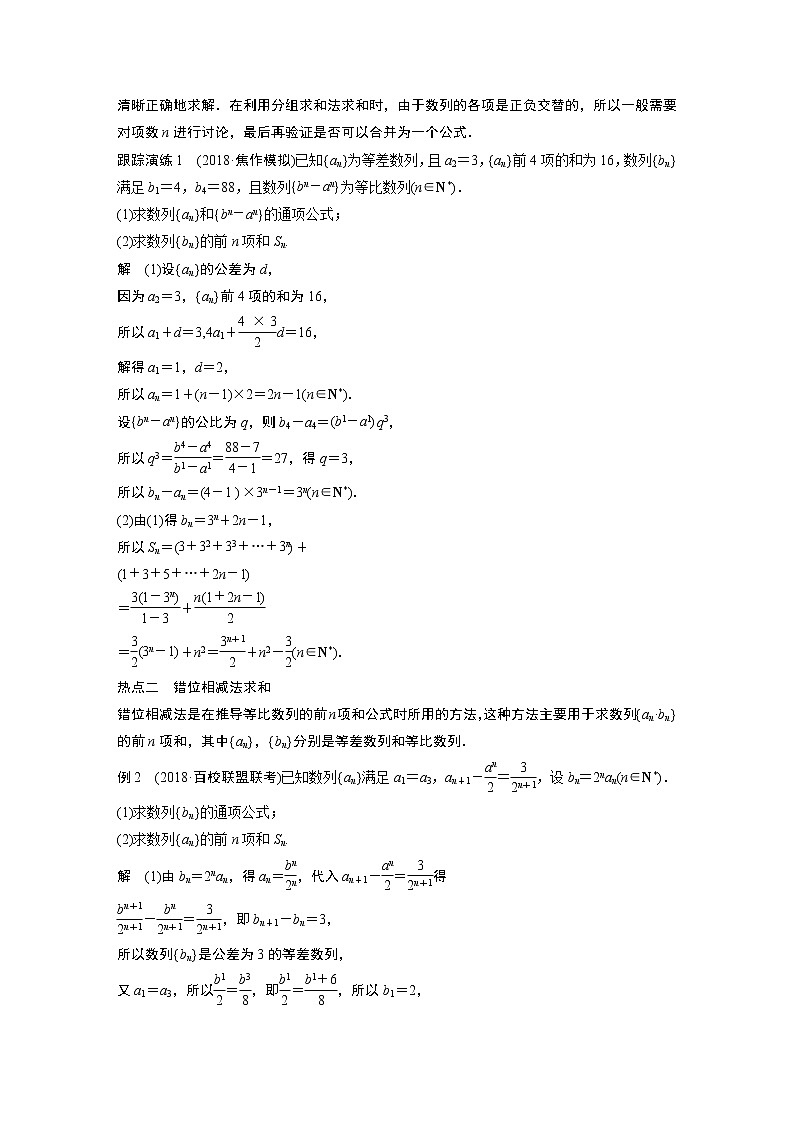 清晰正确地求解．在利用分组求和法求和时，由于数列的各项是正负交替的，所以一般需要
对项数 n 进行讨论，最后再验证是否可以合并为一个公式．
跟踪演练 1　(2018·焦作模拟)已知{aₙ}为等差数列，且 a₂＝3，{aₙ}前 4 项的和为 16，数列{bₙ}
满足 b₁＝4，b₄＝88，且数列{bⁿ－aⁿ}为等比数列(n∈N*)．
(1)求数列{aₙ}和{bⁿ－aⁿ}的通项公式；
(2)求数列{bₙ}的前 n 项和 Sₙ
解　(1)设{aₙ}的公差为 d，
因为 a₂＝3，{aₙ}前 4 项的和为 16，
所以 a₁＋d＝3,4a₁＋(4 × 3)/2 d＝16，
解得 a₁＝1，d＝2，
所以 aₙ＝1＋(n－1)×2＝2n－1(n∈N*)．
设{bⁿ－aⁿ}的公比为 q，则 b₄－a₄＝(b¹－a¹)q³，
所以 q³＝(b⁴－a⁴)/(b¹－a¹)＝(88－7)/(4－1)＝27，得 q＝3，
所以 bₙ－aₙ＝(4－1 ) ×3ⁿ⁻¹＝3ⁿ(n∈N*)．
(2)由(1)得 bₙ＝3ⁿ＋2n－1，
所以 Sₙ＝(3＋3²＋3³＋…＋3ⁿ)＋
(1＋3＋5＋…＋2n－1)
＝3(1－3ⁿ)/(1－3)＋n(1＋2n－1)/2
＝3/2(3ⁿ－1)＋n²＝3ⁿ⁺¹/2＋n²－3/2(n∈N*)．
热点二　错位相减法求和
错位相减法是在推导等比数列的前 n 项和公式时所用的方法，这种方法主要用于求数列{aₙ·bₙ}
的前 n 项和，其中{aₙ}，{bₙ}分别是等差数列和等比数列．
例 2　(2018·百校联盟联考)已知数列{aₙ}满足 a₁＝a₃，aₙ₊₁－aⁿ/2＝3/2ⁿ⁺¹，设 bₙ＝2ⁿaₙ(n∈N*)．
(1)求数列{bₙ}的通项公式；
(2)求数列{aₙ}的前 n 项和 Sₙ
解　(1)由 bₙ＝2ⁿaₙ，得 aₙ＝bⁿ/2ⁿ，代入 aₙ₊₁－aⁿ/2＝3/2ⁿ⁺¹得
bⁿ⁺¹/2ⁿ⁺¹－bⁿ/2ⁿ⁺¹＝3/2ⁿ⁺¹，即 bₙ₊₁－bₙ＝3，
所以数列{bₙ}是公差为 3 的等差数列，
又 a₁＝a₃，所以b¹/2＝b³/8，即b¹/2＝(b¹＋6)/8，所以 b₁＝2，